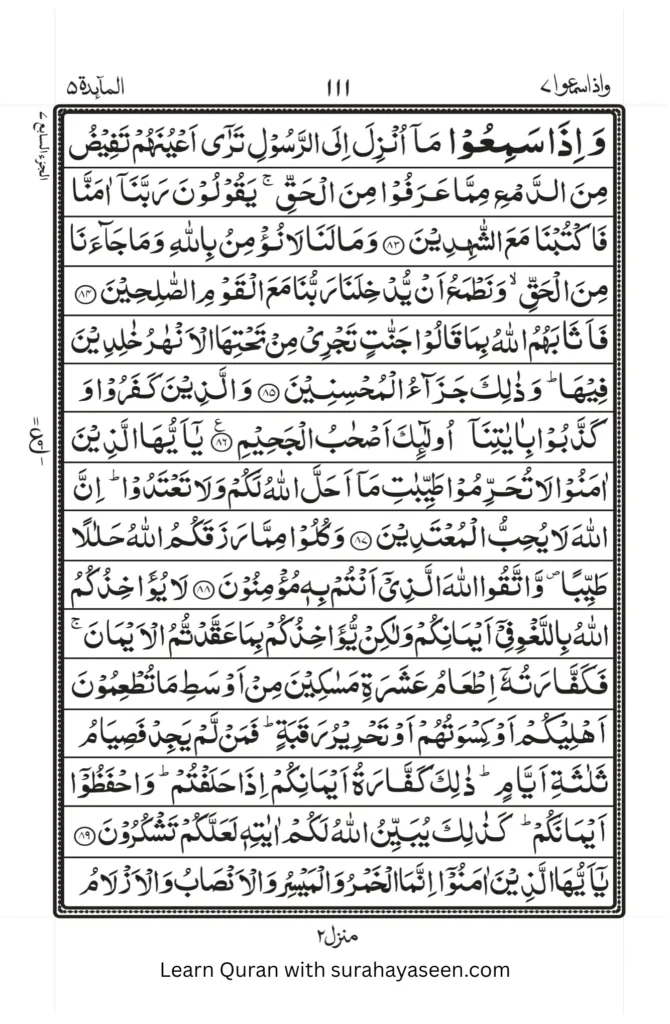 المآىِٕدة ۵ ١١١ واذاسمعوا ٧
الجزء السابع ٧
وَاِذَا سَمِعُوۡا مَاۤ اُنۡزِلَ اِلَى الرَّسُوۡلِ تَرٰٓى اَعۡيُنَهُمۡ تَفِيۡضُ
مِنَ الدَّمۡعِ مِمَّا عَرَفُوۡا مِنَ الۡحَقِّ‌ۚ يَقُوۡلُوۡنَ رَبَّنَاۤ اٰمَنَّا
فَاكۡتُبۡنَا مَعَ الشّٰهِدِيۡنَ ﴿۸۳﴾ وَمَا لَنَا لَا نُؤۡمِنُ بِاللّٰهِ وَمَا جَآءَنَا
مِنَ الۡحَقِّۙ وَنَطۡمَعُ اَنۡ يُّدۡخِلَنَا رَبُّنَا مَعَ الۡقَوۡمِ الصّٰلِحِيۡنَ ﴿۸۴﴾
فَاَثَابَهُمُ اللّٰهُ بِمَا قَالُوۡا جَنّٰتٍ تَجۡرِىۡ مِنۡ تَحۡتِهَا الۡاَنۡهٰرُ خٰلِدِيۡنَ
فِيۡهَا‌ؕ وَذٰلِكَ جَزَآءُ الۡمُحۡسِنِيۡنَ ﴿۸۵﴾ وَالَّذِيۡنَ كَفَرُوۡا وَ
كَذَّبُوۡا بِاٰيٰتِنَاۤ اُولٰٓٮِٕكَ اَصۡحٰبُ الۡجَحِيۡمِ ﴿۸۶﴾ ع يٰۤاَيُّهَا الَّذِيۡنَ
اٰمَنُوۡا لَا تُحَرِّمُوۡا طَيِّبٰتِ مَاۤ اَحَلَّ اللّٰهُ لَـكُمۡ وَلَا تَعۡتَدُوۡا‌ ؕ اِنَّ
اللّٰهَ لَا يُحِبُّ الۡمُعۡتَدِيۡنَ ﴿۸۷﴾ وَكُلُوۡا مِمَّا رَزَقَكُمُ اللّٰهُ حَلٰلًا
طَيِّبًا‌ ۖ وَّاتَّقُوا اللّٰهَ الَّذِىۡۤ اَنۡـتُمۡ بِهٖ مُؤۡمِنُوۡنَ ﴿۸۸﴾ لَا يُؤَاخِذُكُمُ
اللّٰهُ بِاللَّغۡوِ فِىۡۤ اَيۡمَانِكُمۡ وَلٰـكِنۡ يُّؤَاخِذُكُمۡ بِمَا عَقَّدۡتُّمُ الۡاَيۡمَانَ‌ ۚ
فَكَفَّارَتُهٗۤ اِطۡعَامُ عَشَرَةِ مَسٰكِيۡنَ مِنۡ اَوۡسَطِ مَا تُطۡعِمُوۡنَ
اَهۡلِيۡكُمۡ اَوۡ كِسۡوَتُهُمۡ اَوۡ تَحۡرِيۡرُ رَقَبَةٍ‌ ؕ فَمَنۡ لَّمۡ يَجِدۡ فَصِيَامُ
ثَلٰثَةِ اَيَّامٍ‌ ؕ ذٰلِكَ كَفَّارَةُ اَيۡمَانِكُمۡ اِذَا حَلَفۡتُمۡ‌ ؕ وَاحۡفَظُوۡۤا
اَيۡمَانَكُمۡ‌ ؕ كَذٰلِكَ يُبَيِّنُ اللّٰهُ لَـكُمۡ اٰيٰتِهٖ لَعَلَّكُمۡ تَشۡكُرُوۡنَ ﴿۸۹﴾
يٰۤاَيُّهَا الَّذِيۡنَ اٰمَنُوۡۤا اِنَّمَا الۡخَمۡرُ وَالۡمَيۡسِرُ وَالۡاَنۡصَابُ وَالۡاَزۡلَامُ
منزل ٢
Learn Quran with surahayaseen.com